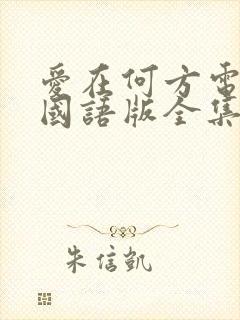 愛在何方電
國語版全集
朱信凱